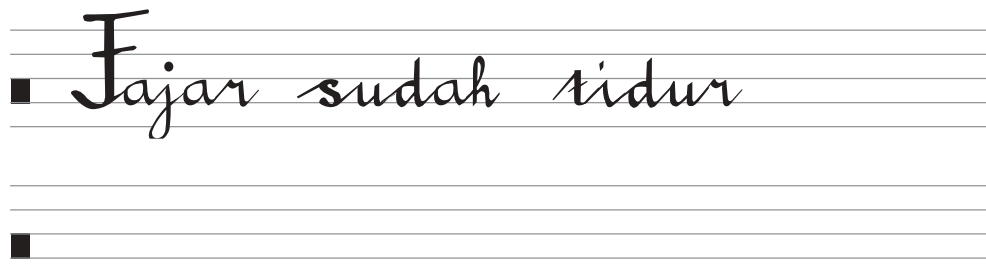 Fajar sudah tidur